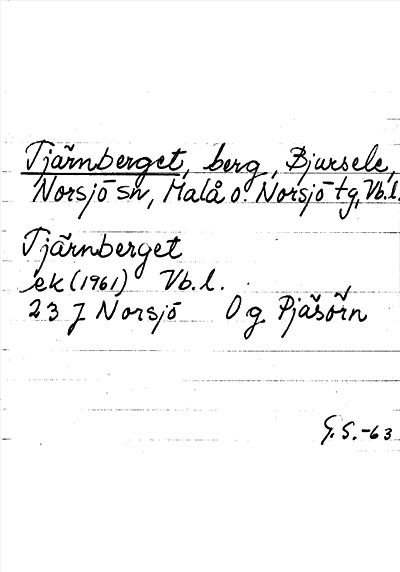 Tjärnberget, berg, Bjursele,
Norsjö sn, Malå o. Norsjö tg, Vb.l.
Tjärnberget
ek (1961) Vb. l.
23 J Norsjö O g Pjäsörn
G. S. -63